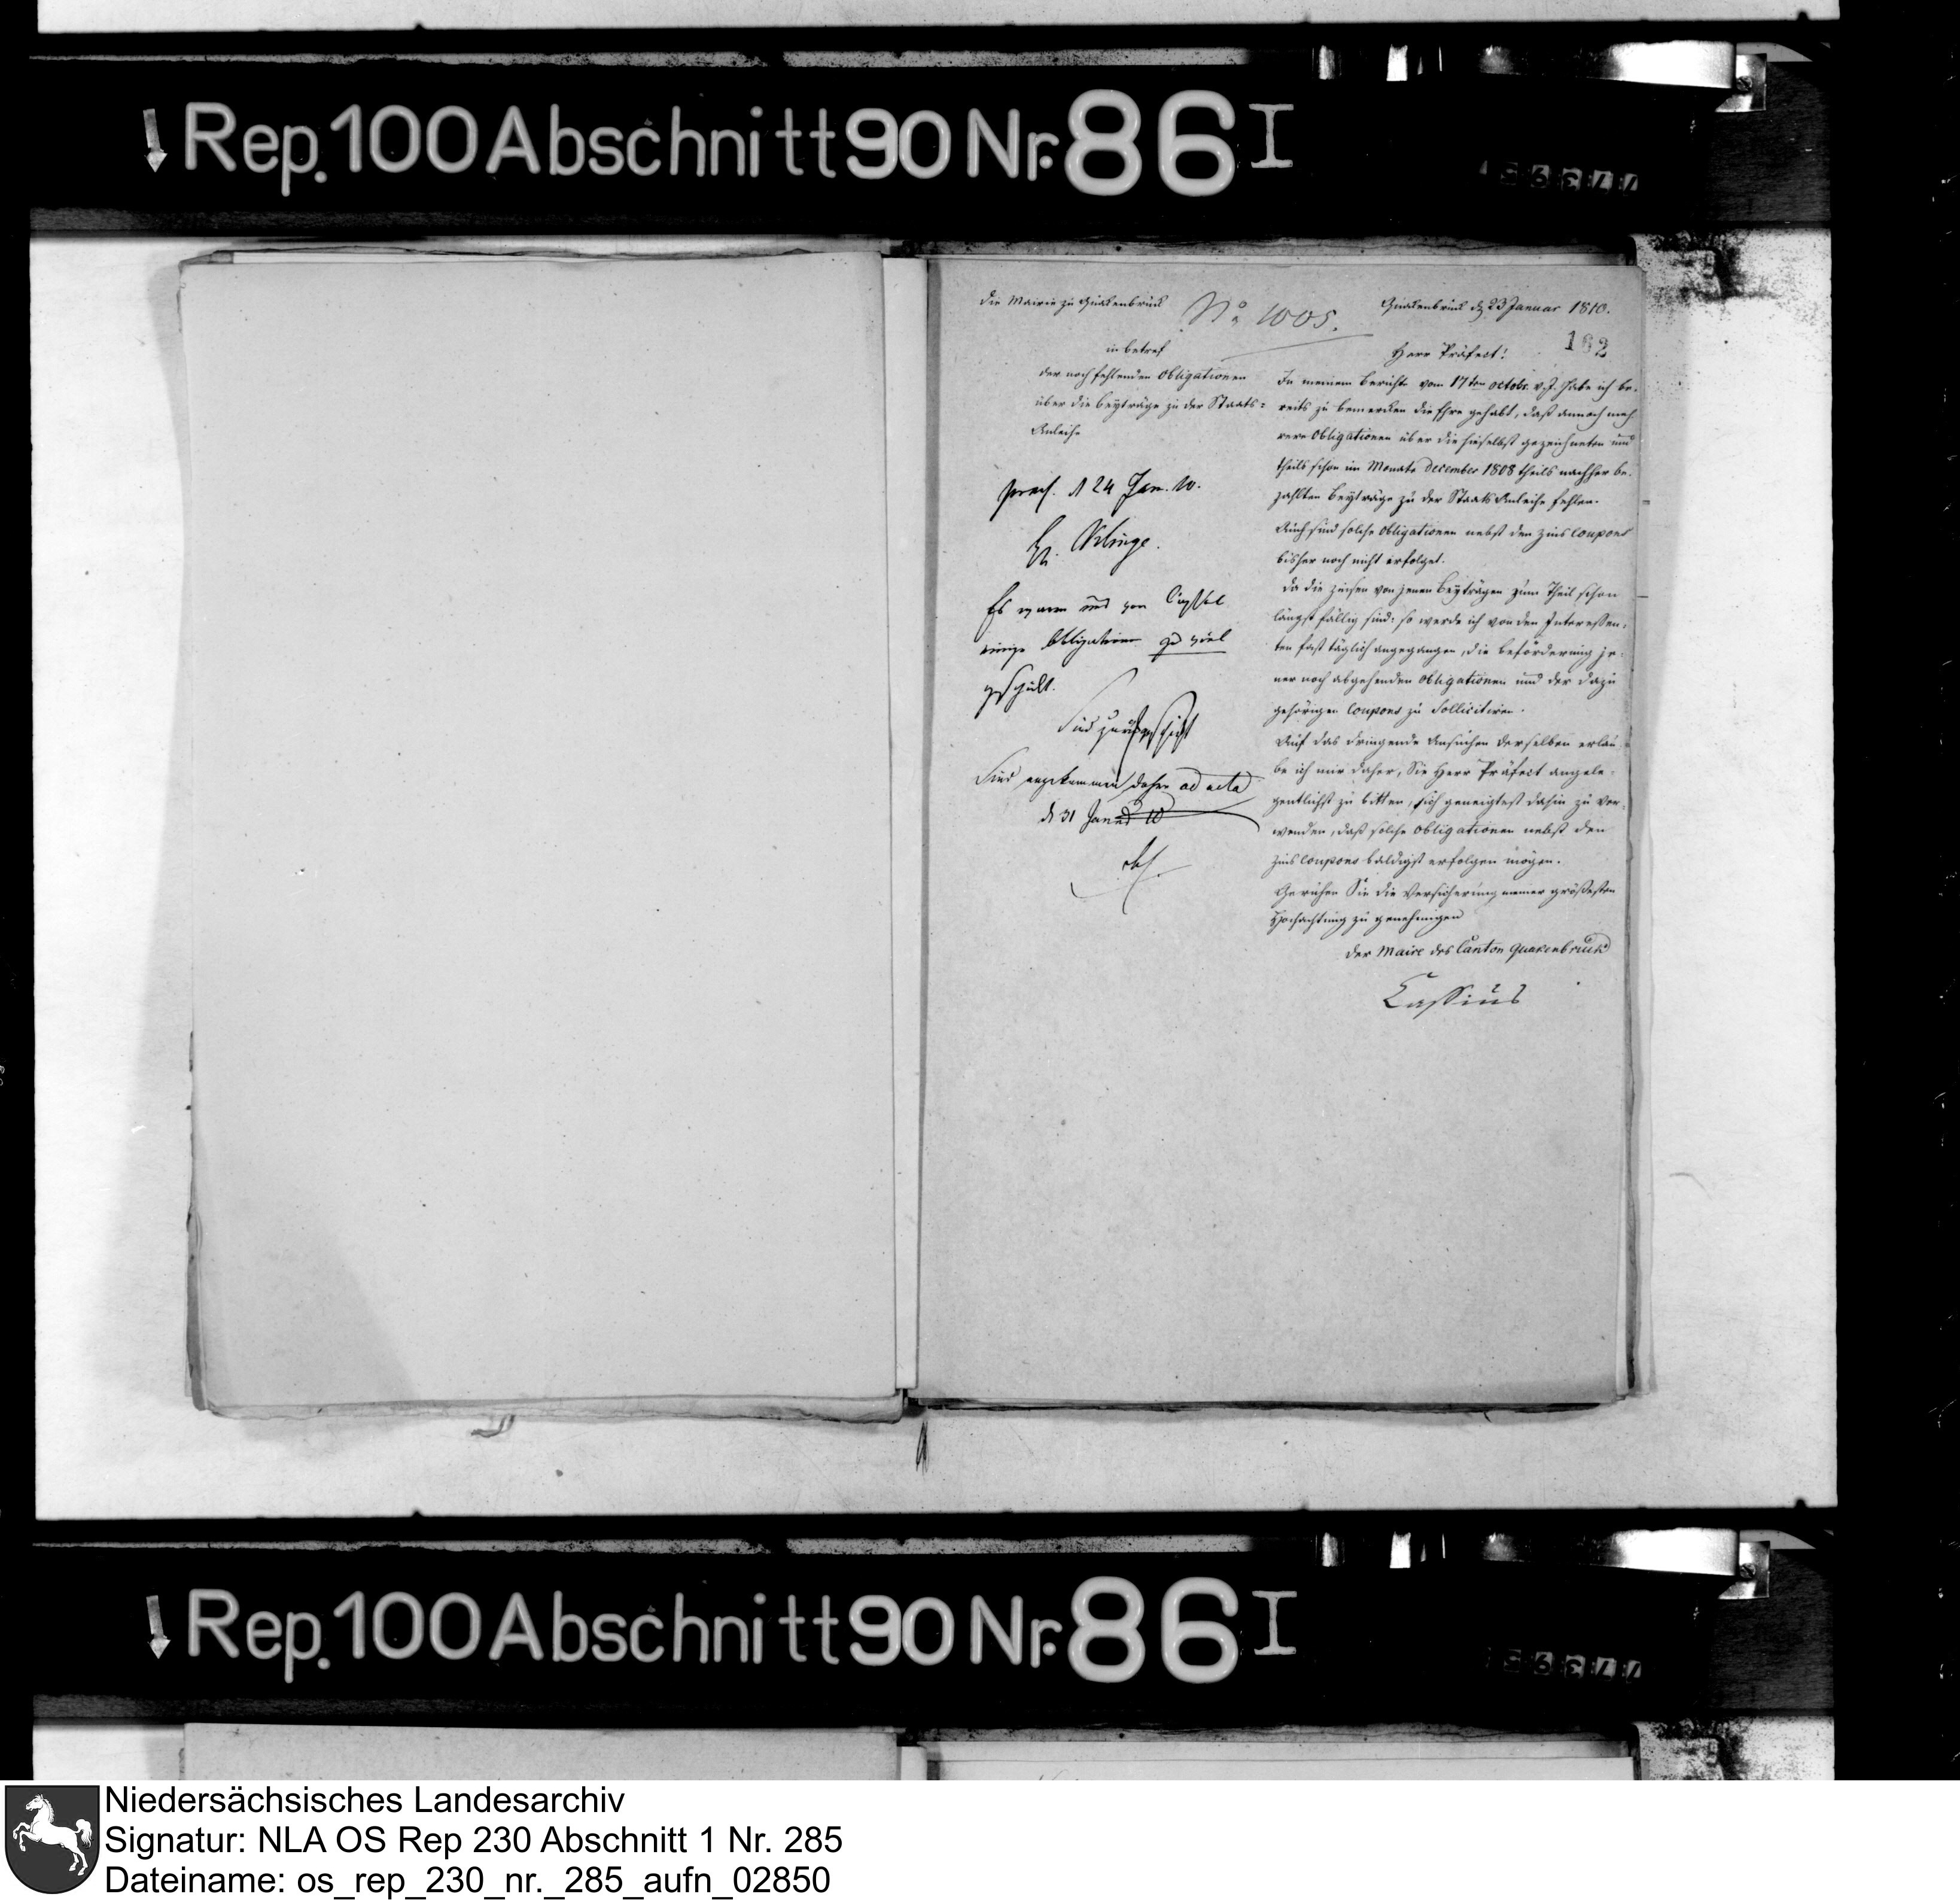 Rep. 100 Abschnitt 90 Nr. 86 I
Die Mairie zu Quakenbrück
No 1005.
Quakenbrück d 23 Januar 1810.
162
in betref
der noch fehlenden Obligationen
über die Beyträge zu der Staats=
Anleihe
praes. d 24 Jan. 10.
H. Klinge.
Es waren uns von Cassel
einige Obligationen zu viel
geschickt.
Sind zurückgeschickt
Sind angekommen daher ad acta
d 31 Jan 10
Herr Präfect!
In meinem Berichte vom 17ten octobr. v. J. habe ich be-
reits zu bemercken die Ehre gehabt, daß annoch meh-
rere Obligationen über die hieselbst gezeichneten und
theils schon im Monate December 1808 theils nachher be-
zahlten Beyträge zu der Staats Anleihe fehlen.
Auch sind solche Obligationen nebst den Zins Coupons
bisher noch nicht erfolget.
Da die Zinsen von jenen Beyträgen zum Theil schon
längst fällig sind: so werde ich von den Interessen-
ten fast täglich angegangen, die Beförderung je-
ner noch abgehenden Obligationen und der dazu
gehörigen Coupons zu sollicitiren.
Auf das dringende Ansuchen derselben erlau-
be ich mir daher, Sie Herr Präfect angele-
gentlichst zu bitten, sich geneigtest dahin zu ver-
wenden, daß solche Obligationen nebst den
Zins Coupons baldigst erfolgen mögen.
Geruhen Sie die Versicherung meiner größesten
Hochachtung zu genehmigen
Der Maire des Canton Quakenbrück
Cassius
Rep. 100 Abschnitt 90 Nr. 86 I
Niedersächsisches Landesarchiv
Signatur: NLA OS Rep 230 Abschnitt 1 Nr. 285
Dateiname: os_rep_230_nr._285_aufn_02850